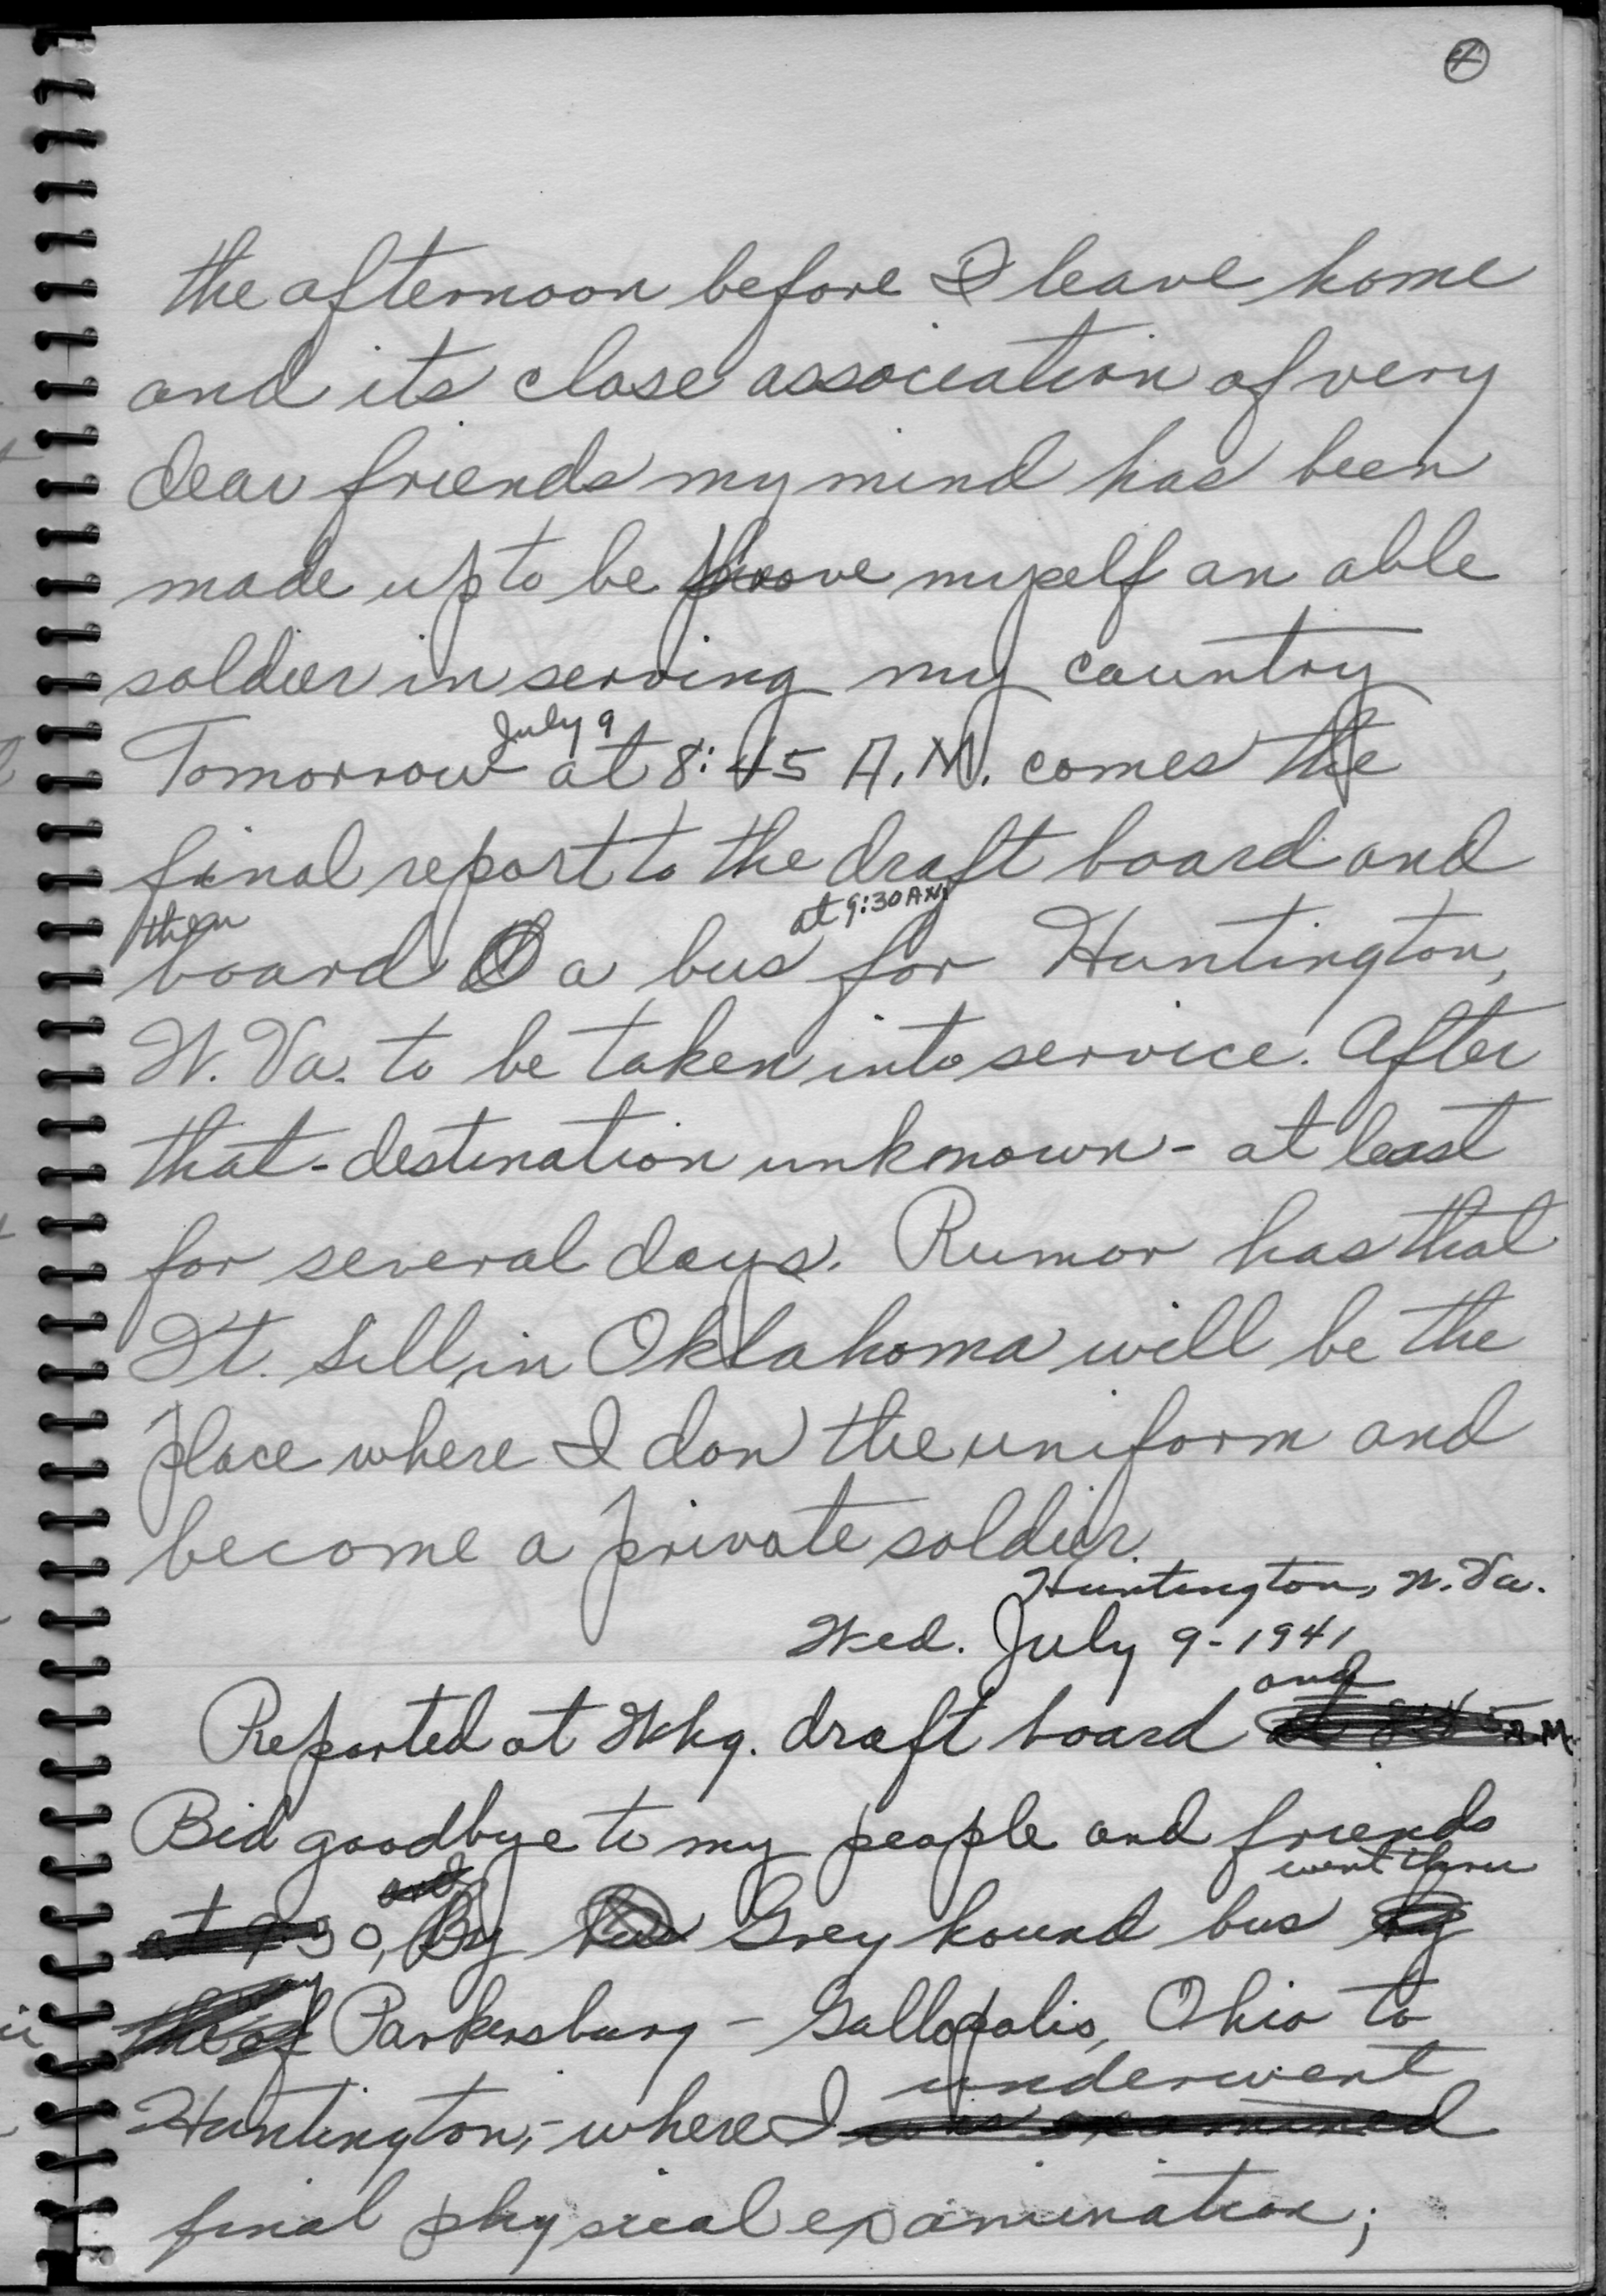 4
the afternoon before I leave home
and its close association of very
dear friends my mind has been
made up to be proove myself an able
soldier in serving my country
July 9
Tomorrow at 8:45 A.M. comes the
final report to the draft board and
then at 9:30 AM
board a bus for Huntington,
W. Va. to be taken into service. After
that - destination unknown - at least
for several days. Rumor has that
Ft. Sill, in Oklahoma will be the
place where I don the uniform and
become a private soldier.
Huntington, W. Va.
Wed. July 9 - 1941
and
Reported at Whg. draft board at 8:45 A.M.
Bid goodbye to my people and friends
and went thru
at 9:30, By bus Greyhound bus by
Parkersburg - Gallopalis, Ohio to
underwent
Huntington, - where I was examined
final physical examination;